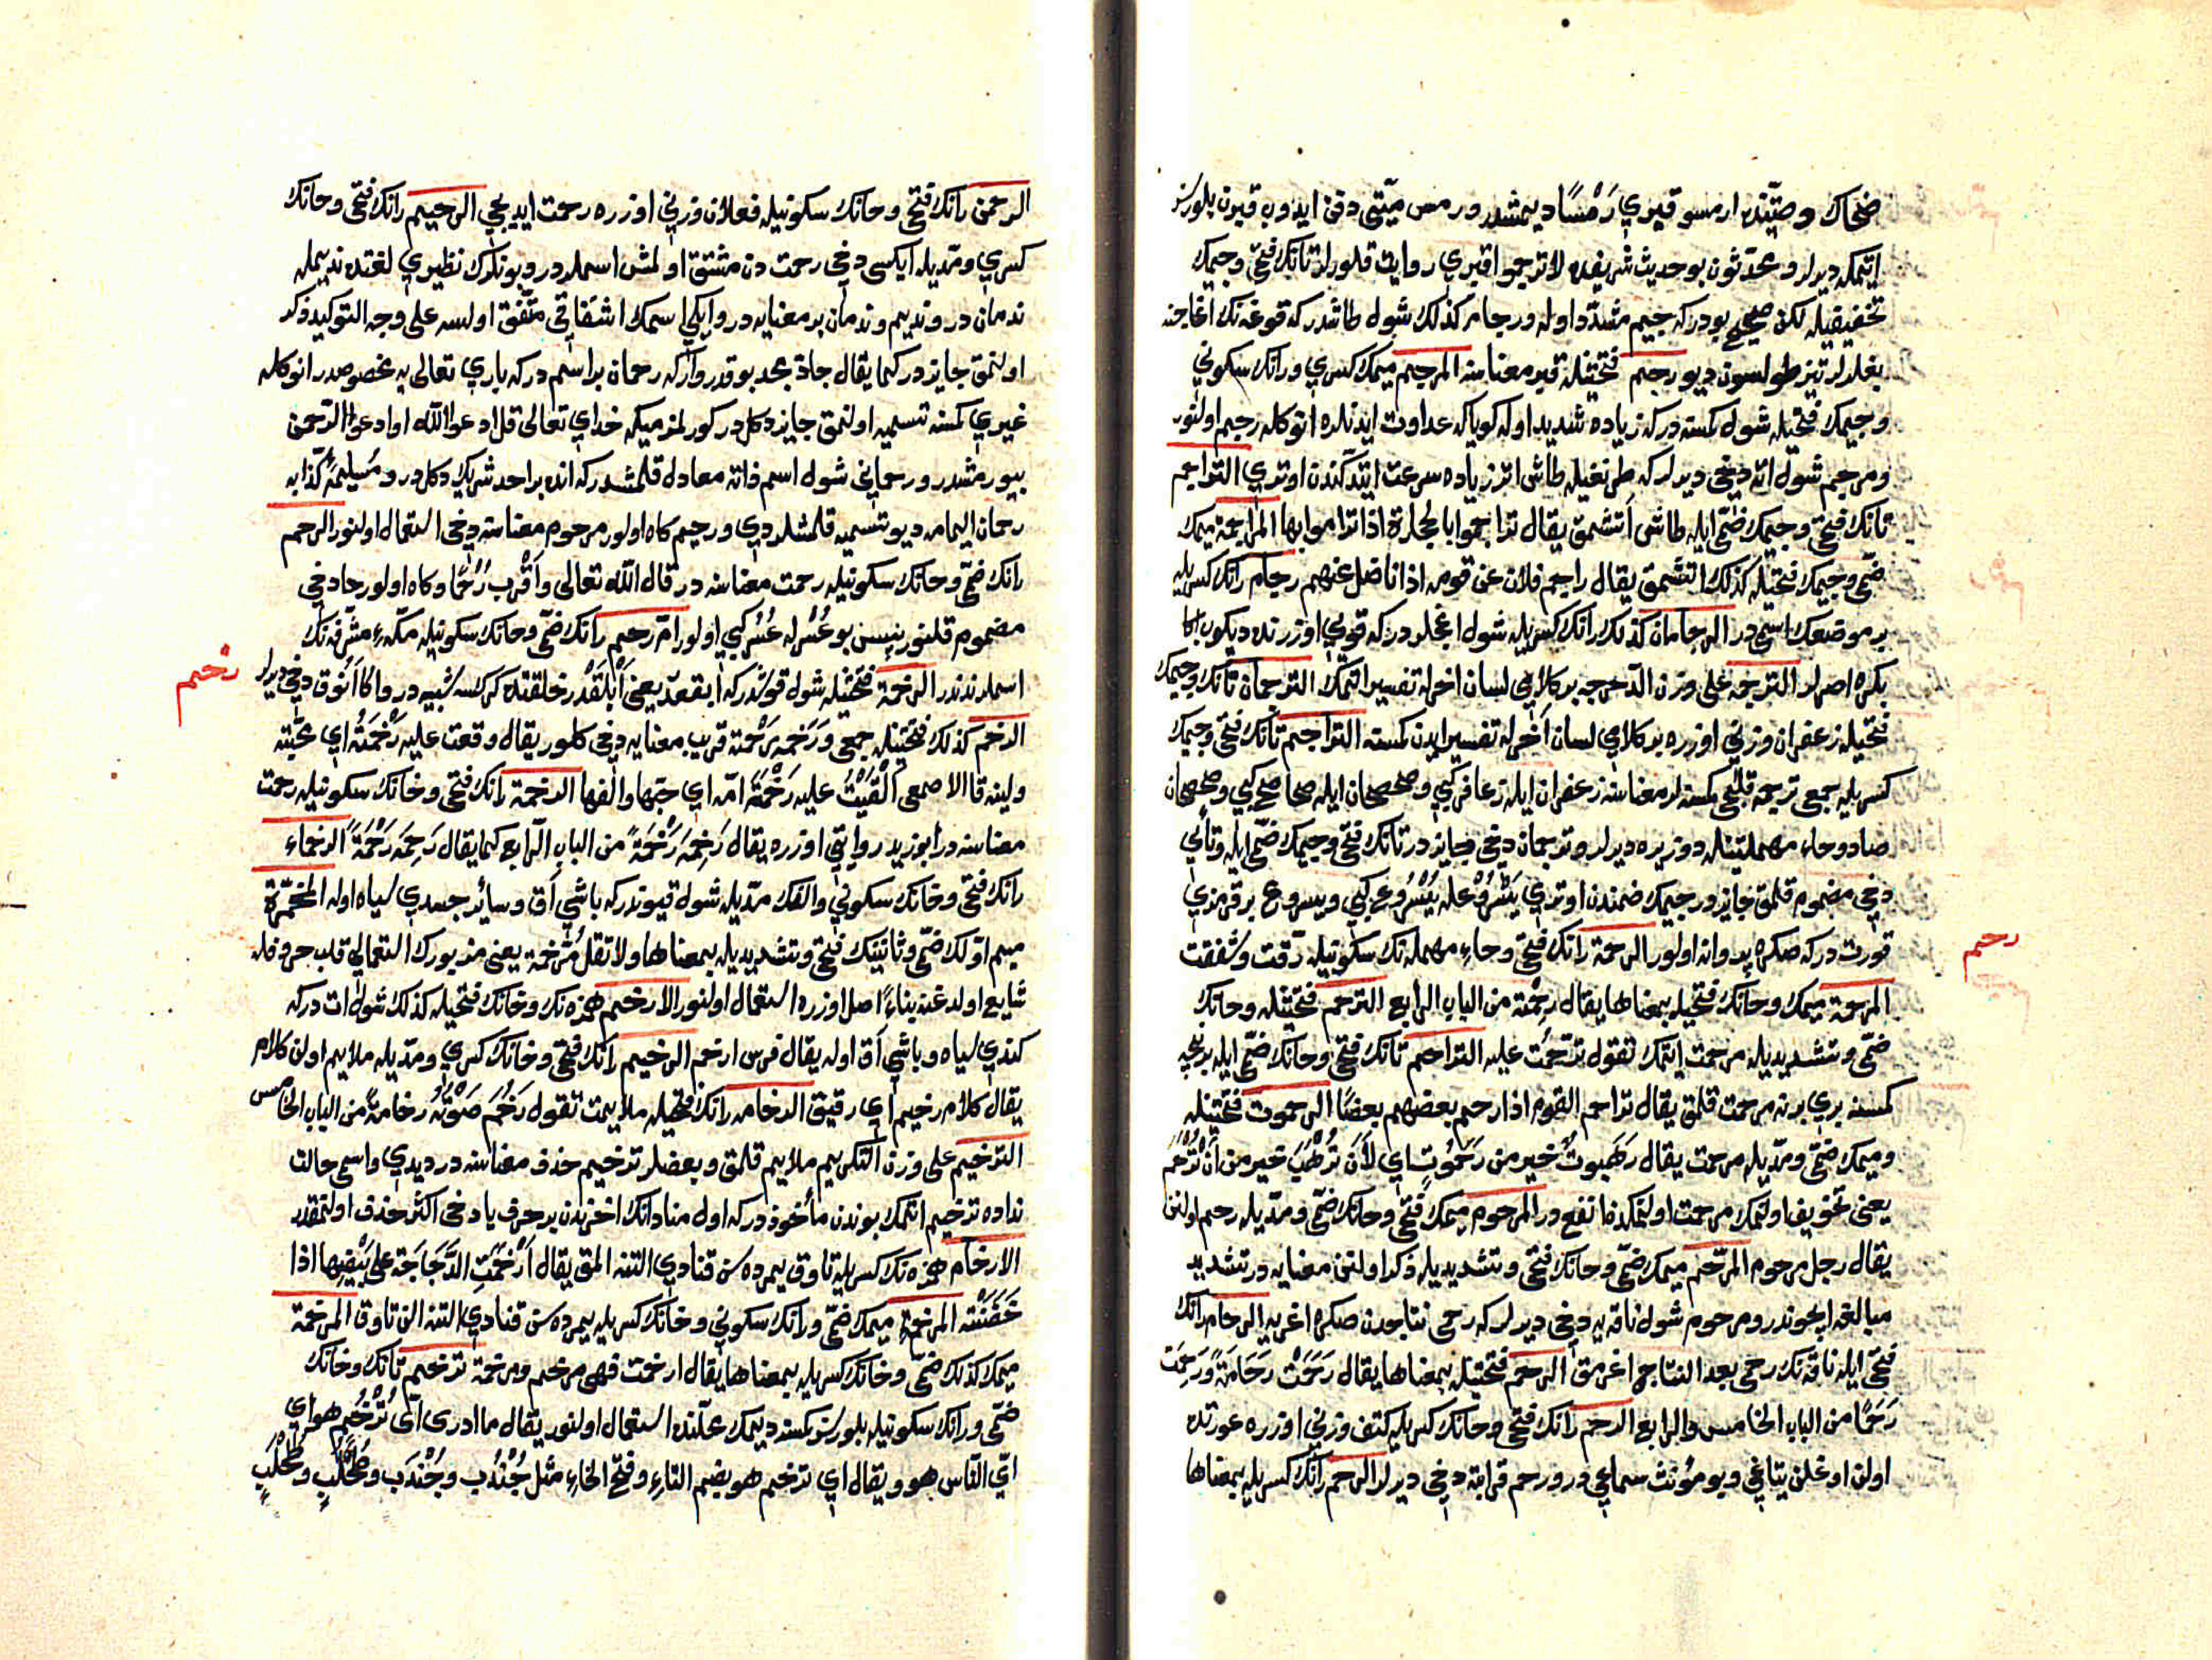 ضحاك وصيتنده ارمسو قبري رَمْسًا ديمشدر ورمس ميّتى دفن ايدوب قبرين بلورسز
اتيمكه ديرلر ومحدّثون بو حديث شريفده لا ترجموا قبري روايت قلورلر تانك فتحى وجيمك
تخفيفيله لكن صحيح بودر كه جيم مشدّد اوله ورجام كذلك شول طاشدر كه قوغه نك اغاجنه
بغلرلر تيز طولسون ديو رجيم فتحتيله قبر معناسنه المرجم ميمك كسري ورانك سكوني
وجيمك فتحيله شول كمسنه در كه زياده شديد اوله كوياكه عداوت ايدنلره انوكله رجيم اولنور
ومرجم شول اته دخى ديرلر كه طرنغيله طاش اتر زياده سرعت ايتدكندن اوتري التراجم
تانك فتحى وجيمك ضمّى ايله طاش اتشمق يقال تراجموا بالحجارة اذا تراموا بها المراجمة ميمك
ضمّى وجيمك فتحيله كذلك اتشمق يقال راجم فلان عن قومه اذا ناضل عنهم رجام رانك كسريله
بر موضعك اسمى در الرجامان كذلك رانك كسريله شول ايكى اغجلدر كه قويي اوزرنده ديكوب اكا
بكره اصرلر الترجمه على وزن الدّحرجه بر كلامي لسان اخرله تفسير اتمك الترجمان تانك وجيمك
فتحيله زعفران وزني اوزره بر كلامي لسان اخرله تفسير ايدن كمسنه التراجم تانك فتحى وجيمك
كسريله جمعى ترجمه قلجى كمسنه لر معناسنه زعفران ايله زعافر كبي وصحصحان ايله صحاصح كبي وصحصحان
صاد وحاء مهملتينله دوز يره ديرلر وترجمان دخى جايزدر تانك فتحى وجيمك ضمّى ايله وتايي
دخى مضموم قلمق جايزدر جيمك ضمندن اوتري يَسْرُوْعله يُسْرُوع كبي ويسروع بر قرمزي
قورت در كه صكره پروانه اولور الرحمة رانك فتحى وحاء مهمله نك سكونيله رقت وشفقت
المرحمة ميمك وحانك فتحيله بمعناها يقال رحمته من الباب الرابع الترحم فتحتيله وحانك
ضمّى وتشديديله مرحمت ايتمك تقول ترحّمت عليه التراحم تانك فتحى وحانك ضمّى ايله برنجه
كمسنه بري برنه مرحمت قلمق يقال تراحم القوم اذا رحم بعضهم بعضًا الرحموت فتحتيله
وميمك ضمّى ومدّيله مرحمت يقال رَهَبوتٌ خير من رَحَمُوتٍ اي لأن تُرْهَبَ خير من أن تُرْحَم
يعنى تخويف اولنمك مرحمت اولنمكدن انفع در المرحوم ميمك فتحى وحانك ضمّى ومدّيله رحم اولنن
يقال رجل مرحوم المرحّم ميمك ضمّى وحانك فتحى وتشديديله ذكر اولنن معنايه در تشديد
مبالغه ايچوندر ومرحوم شول ناقه يه دخى ديرلر كه رحمى نتاجدن صكره اغريه الرحام رانك
فتحى ايله ناقه نك رحمى بعد النتاج اغرمق الرحم فتحتيله بمعناها يقال رحمت رحامةً ورحمت
رَحَمًا من الباب الخامس والرابع الرحم رانك فتحى وحانك كسريله كتف وزني اوزره عورتده
اولن اوغلن يتاغي وبو مؤنث سماعي در ورحم قرابته دخى ديرلر الرحم رانك كسريله بمعناها
رجم
الرحمن رانك فتحى وحانك سكونيله فعلان وزني اوزره رحمت ايديجى الرحيم رانك فتحى وحانك
كسري ومدّيله ايكسى دخى رحمت دن مشتق اولمش اسملردر وبونلرك نظيري لغتده نديمله
ندمان در ونديم وندمان بر معنايه در وايكى اسمك اشتقاقى متّفق اولسه على وجه التوكيد ذكر
اولنمق جايزدر كما يقال جادّ مجد بو قدر واركه رحمان بر اسم در كه باري تعالى يه مخصوصدر انوكله
غيري كمسنه تسميه اولنمق جايز دكل در كورلمزميكه خداي تعالى قل ادعوا الله او ادعوا الرحمن
بيورمشدر ورحماني شول اسم ذاته معادل قلمشدر كه انده بر احد شريك دكل در ومسيلمۀ كذّابه
رحمان اليمامه ديو تسميه قلمشلردي ورحيم كاه اولور مرحوم معناسنه دخى استعمال اولنور الرحم
رانك ضمّى وحانك سكونيله رحمت معناسنه در قال الله تعالى وأقرب رُحْمًا وكاه اولور حا دخى
مضموم قلنور پس بو عُسْرله عُسُر كبي اولور امّ رحم رانك ضمّى وحانك سكونيله مكّۀ مشرّفه نك
اسملرندندر الرخمة فتحتيله شول قوشدر كه ابقعدر يعنى ابلقدر خلقتده كركسه شبيه در واكا انوق دخى ديرلر
الرخم كذلك فتحتيله جمعى ورَخَمَه رحمة قريب معنايه دخى كلور يقال وقعت عليه رَخْمَتُه اي محبّته
ولينه قال الاصمعى ألْقَيْتُ عليه رَخْمَةَ امّه اي حبّها والفها الرخمة رانك فتحى وخانك سكونيله رحمت
معناسنه در ابو زيد روايتي اوزره يقال رَخِمَه رَخْمَةً من الباب الرابع كما يقال رَحِمَه رَحْمَةً الرخماء
رانك فتحى وخانك سكوني والفك مدّيله شول قيوندر كه باشي اق وسائر جسدي سياه اوله المخمّرة
ميم اوّلك ضمّى وثانينك فتحى وتشديديله بمعناها ولا تقل مُرخّمة يعنى مزبورك استعمالي قلب حروفله
شايع اولدغنه بناءً اصل اوزره استعمال اولنور الارخم همزه نك وخانك فتحيله كذلك شول ات در كه
كندي سياه وباشي اق اوله يقال فرس ارخم الرخيم رانك فتحى وخانك كسري ومدّيله ملايم اولن كلام
يقال كلام رخيم اي رقيق الرخامه رانك فتحيله ملايمت تقول رَخُمَ صَوْتُه رخامةً من الباب الخامس
الترخيم على وزن التكريم ملايم قلمق وبعضلر ترخيم حذف معناسنه در ديدي واسمى حالت
نداده ترخيم اتمك بوندن مأخوذ در كه اول منادانك اخرندن بر حرف يا دخى اكثر حذف اولنمقدر
الارخام همزه نك كسريله تاوق يمرده سن قنادي التنه المق يقال أَرْخَمَتِ الدَّجَاجَة على بَيْضِها اذا
حَضَنَتْه المرخمة ميمك ضمّى ورانك سكوني وخانك كسريله يمرده سن قنادي التنه الن تاوق المرخمة
ميمك كذلك ضمّى وخانك كسريله بمعناها يقال ارخمت فهى مرخم ومرخمة ترخم تانك وخانك
ضمّى ورانك سكونيله بلورسز كمسنه ديمك محلنده استعمال اولنور يقال ما ادرى ايّ تُرْخُمٍ هو اي
ايّ النّاس هو ويقال اي ترخم هو بضم التاء وفتح الخاء مثل جُنْدُب وجُنْدَب وطُحْلُبٍ وطُحْلَبٍ
رخم